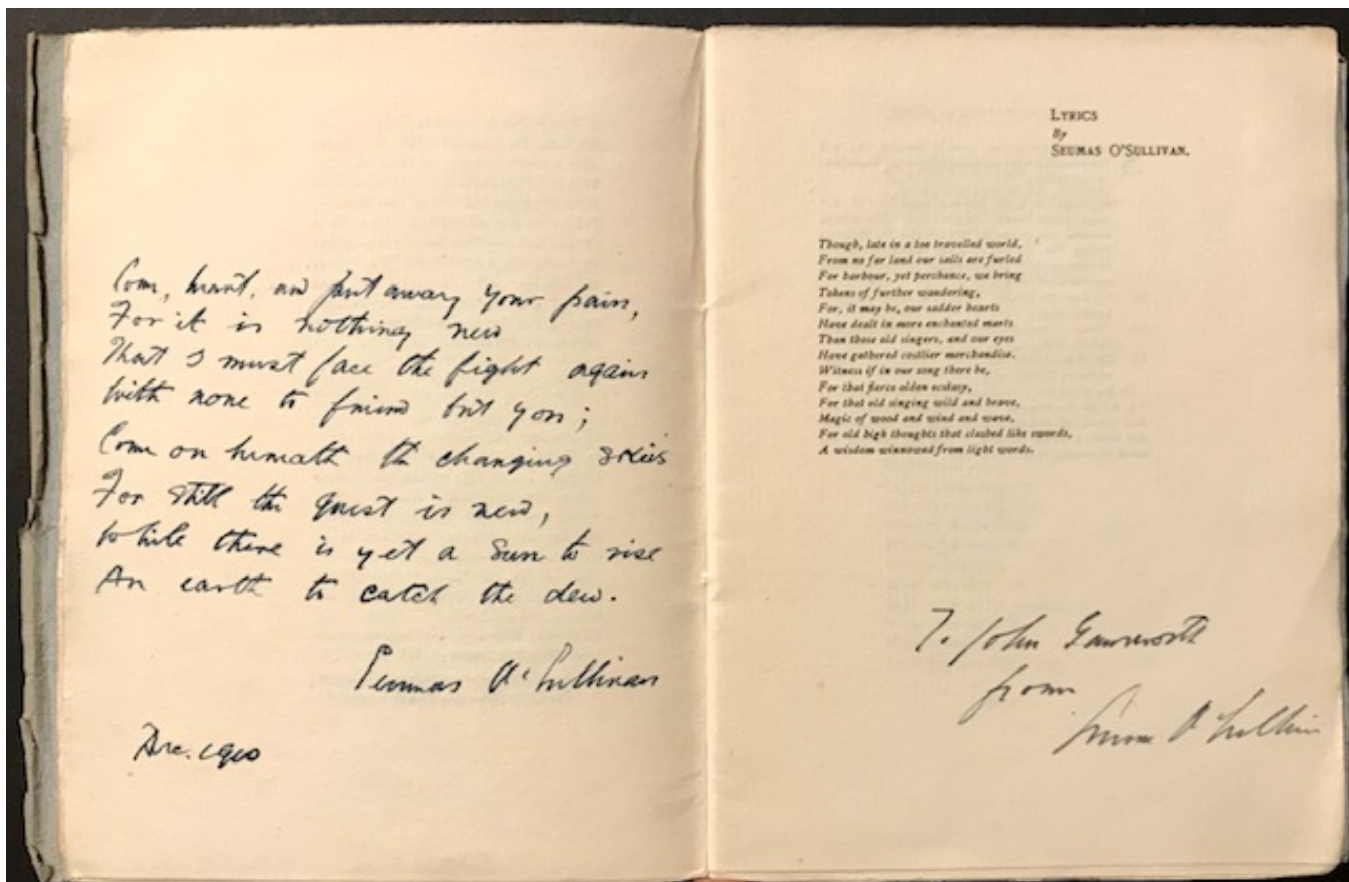 Come, heart, and put away your pain,
For it is nothing new
That I must face the fight again
With none to friend but you;
Come on beneath the changing skies
For still the quest is new,
While there is yet a Sun to rise
An earth to catch the dew.
Seumas O'Sullivan
Dec. 1910
LYRICS
By
SEUMAS O'SULLIVAN.
Though, late in a too travelled world,
From no far land our sails are furled
For harbour, yet perchance, we bring
Tokens of further wandering,
For, it may be, our sadder hearts
Have dealt in more enchanted marts
Than those old singers, and our eyes
Have gathered costlier merchandise.
Witness if in our song there be,
For that fierce olden ecstasy,
For that old singing wild and brave,
Magic of wood and wind and wave,
For old high thoughts that clashed like swords,
A wisdom winnowed from light words.
To John Gawsworth
from
Seumas O'Sullivan